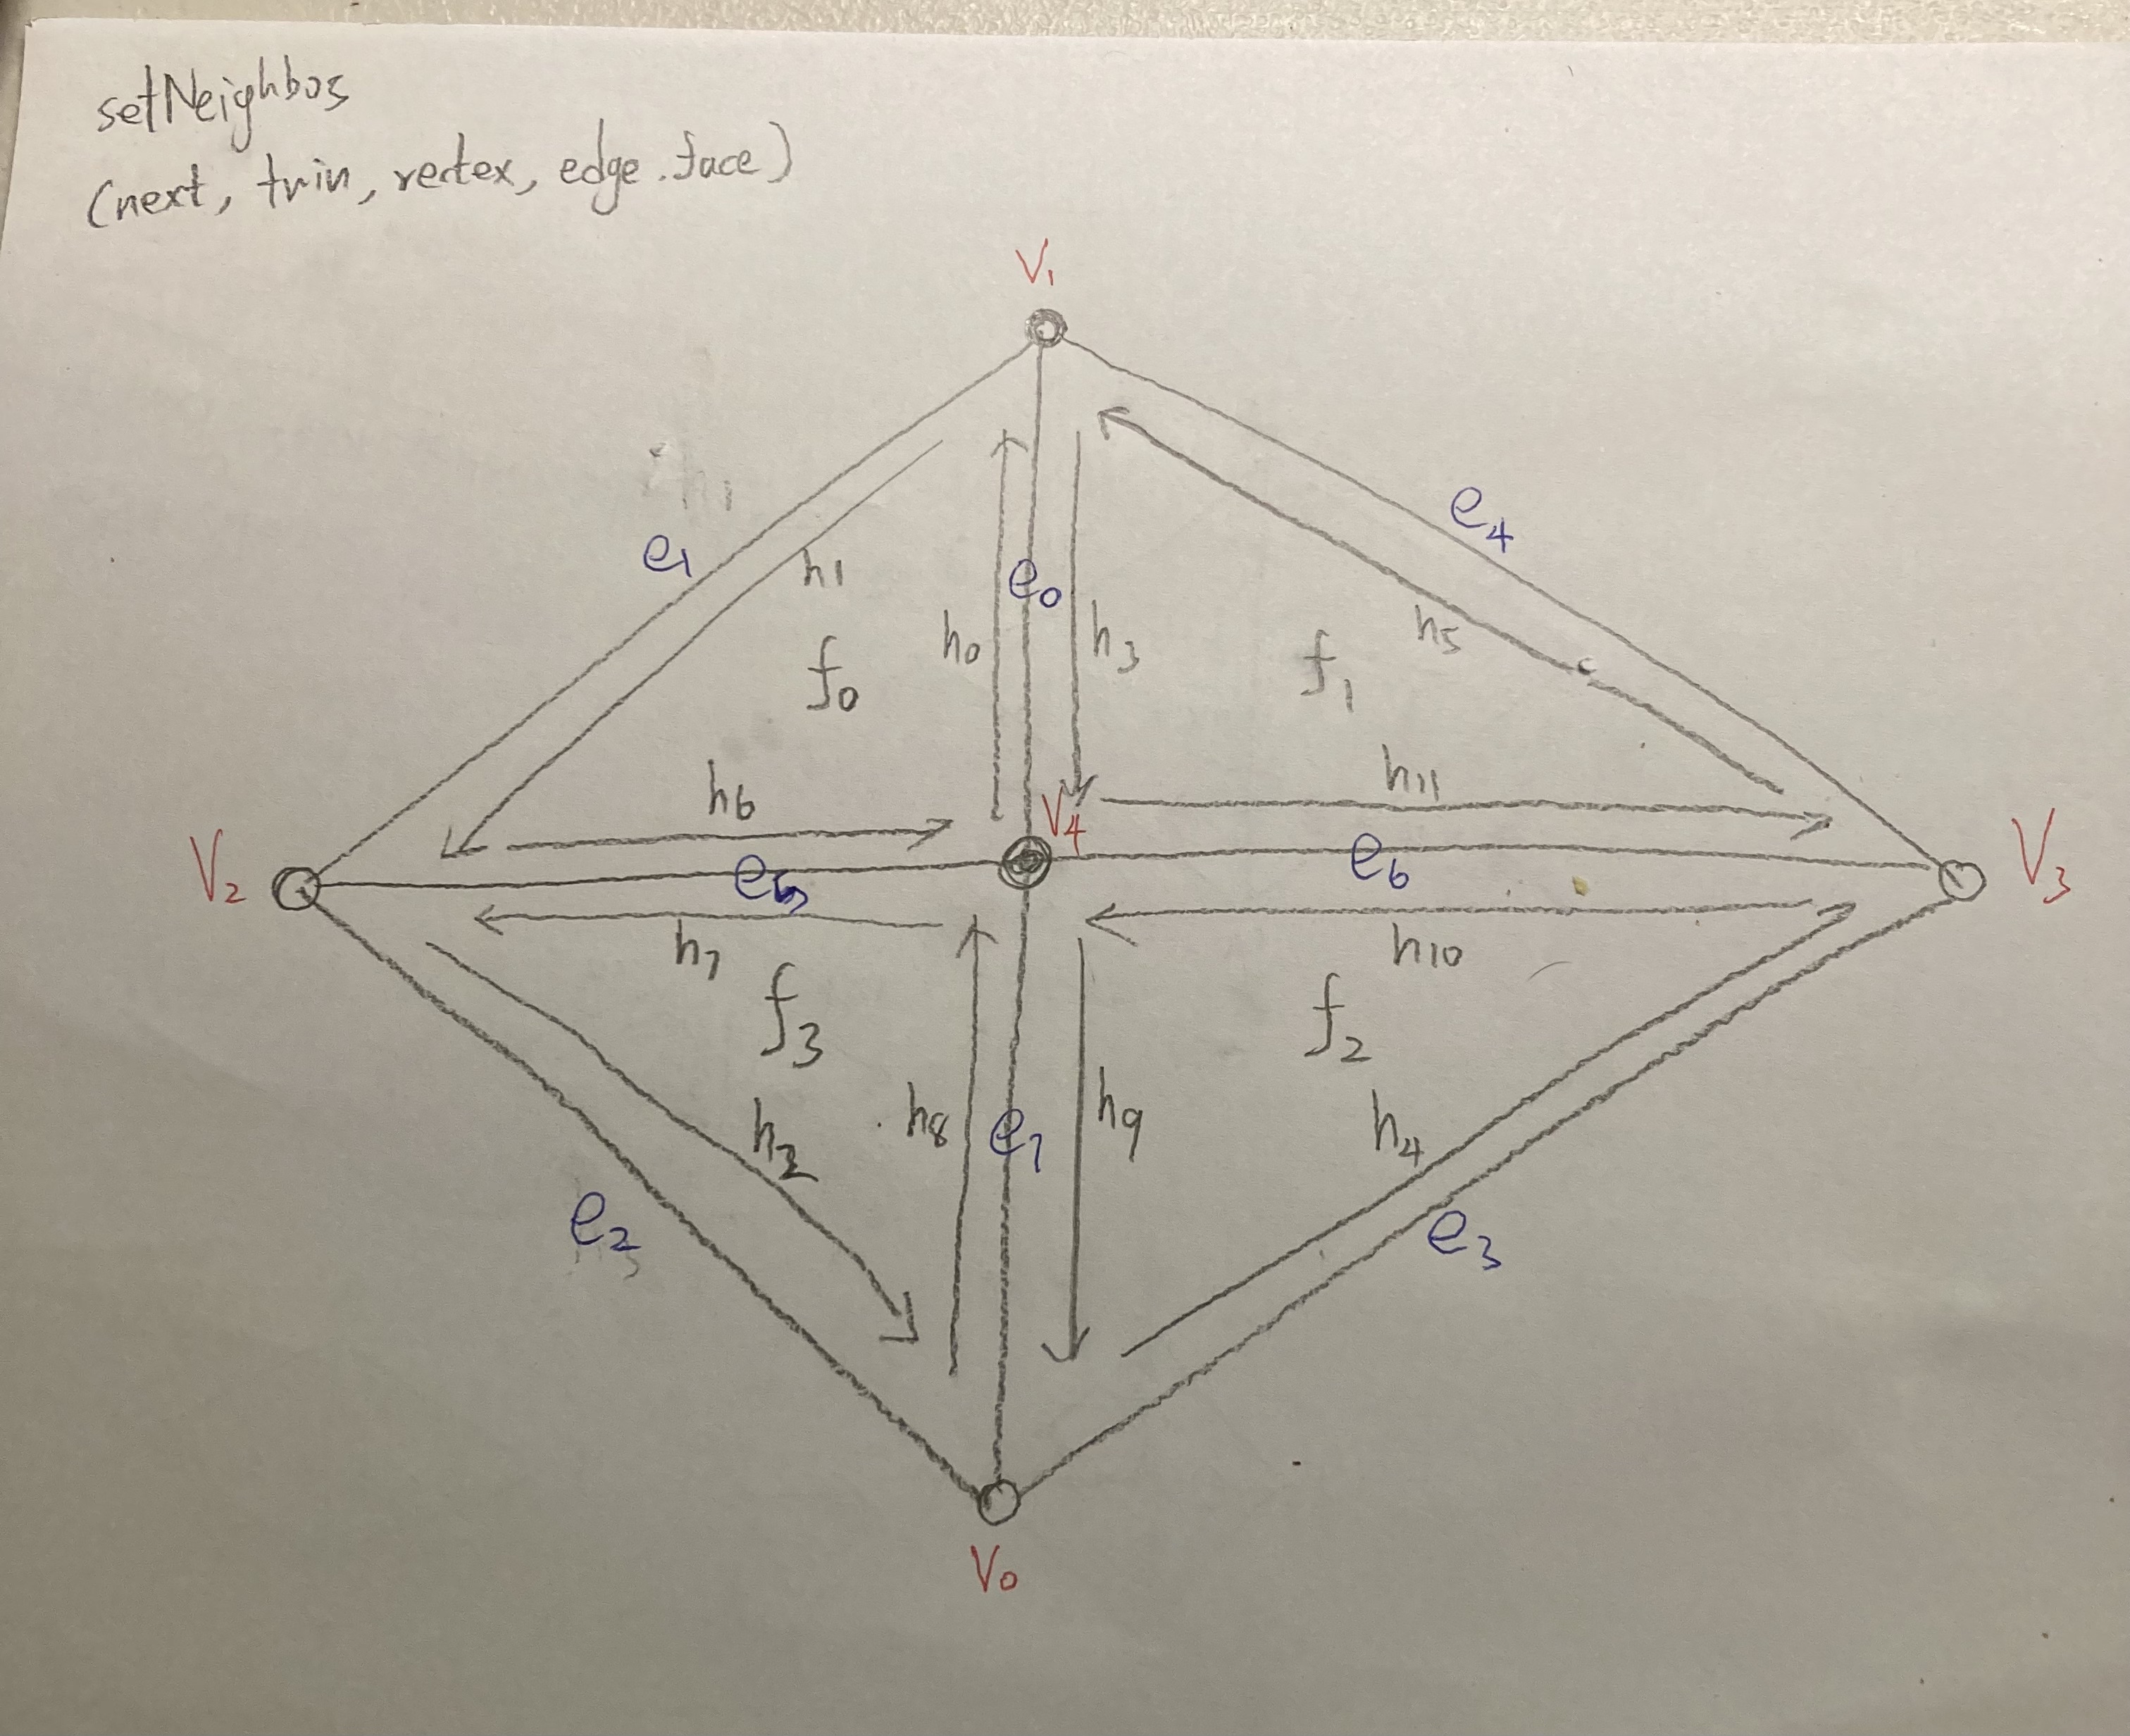 setNeighbos
(next, twin, vertex, edge.face)
V1
e4
e1
h1
e0
h0
h3
h5
f0
f1
h6
h11
V4
V2
e5
e6
V3
h7
h10
f3
f2
h2
h8
e7
h9
h4
e2
e3
V0